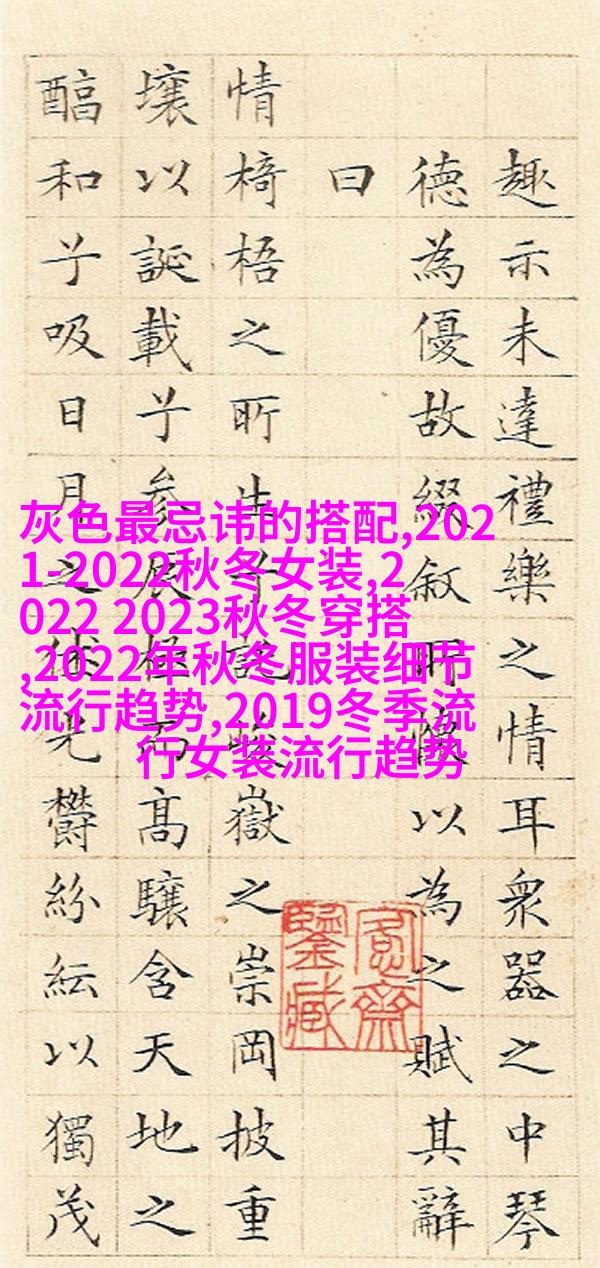 趣示未達禮樂之情耳衆器之中琴
德為優故綴叙所懷以為之賦其辭
曰
情椅梧之所生兮託峻嶽之崇岡披重
壤以誕載兮参辰極而高驤含天地之
醕和兮吸日月之休光欝紛紜以獨茂
愙齋
鑒藏
灰色最忌讳的搭配,202
1-2022秋冬女装,2
022 2023秋冬穿搭
,2022年秋冬服装细节
流行趋势,2019冬季流
行女装流行趋势